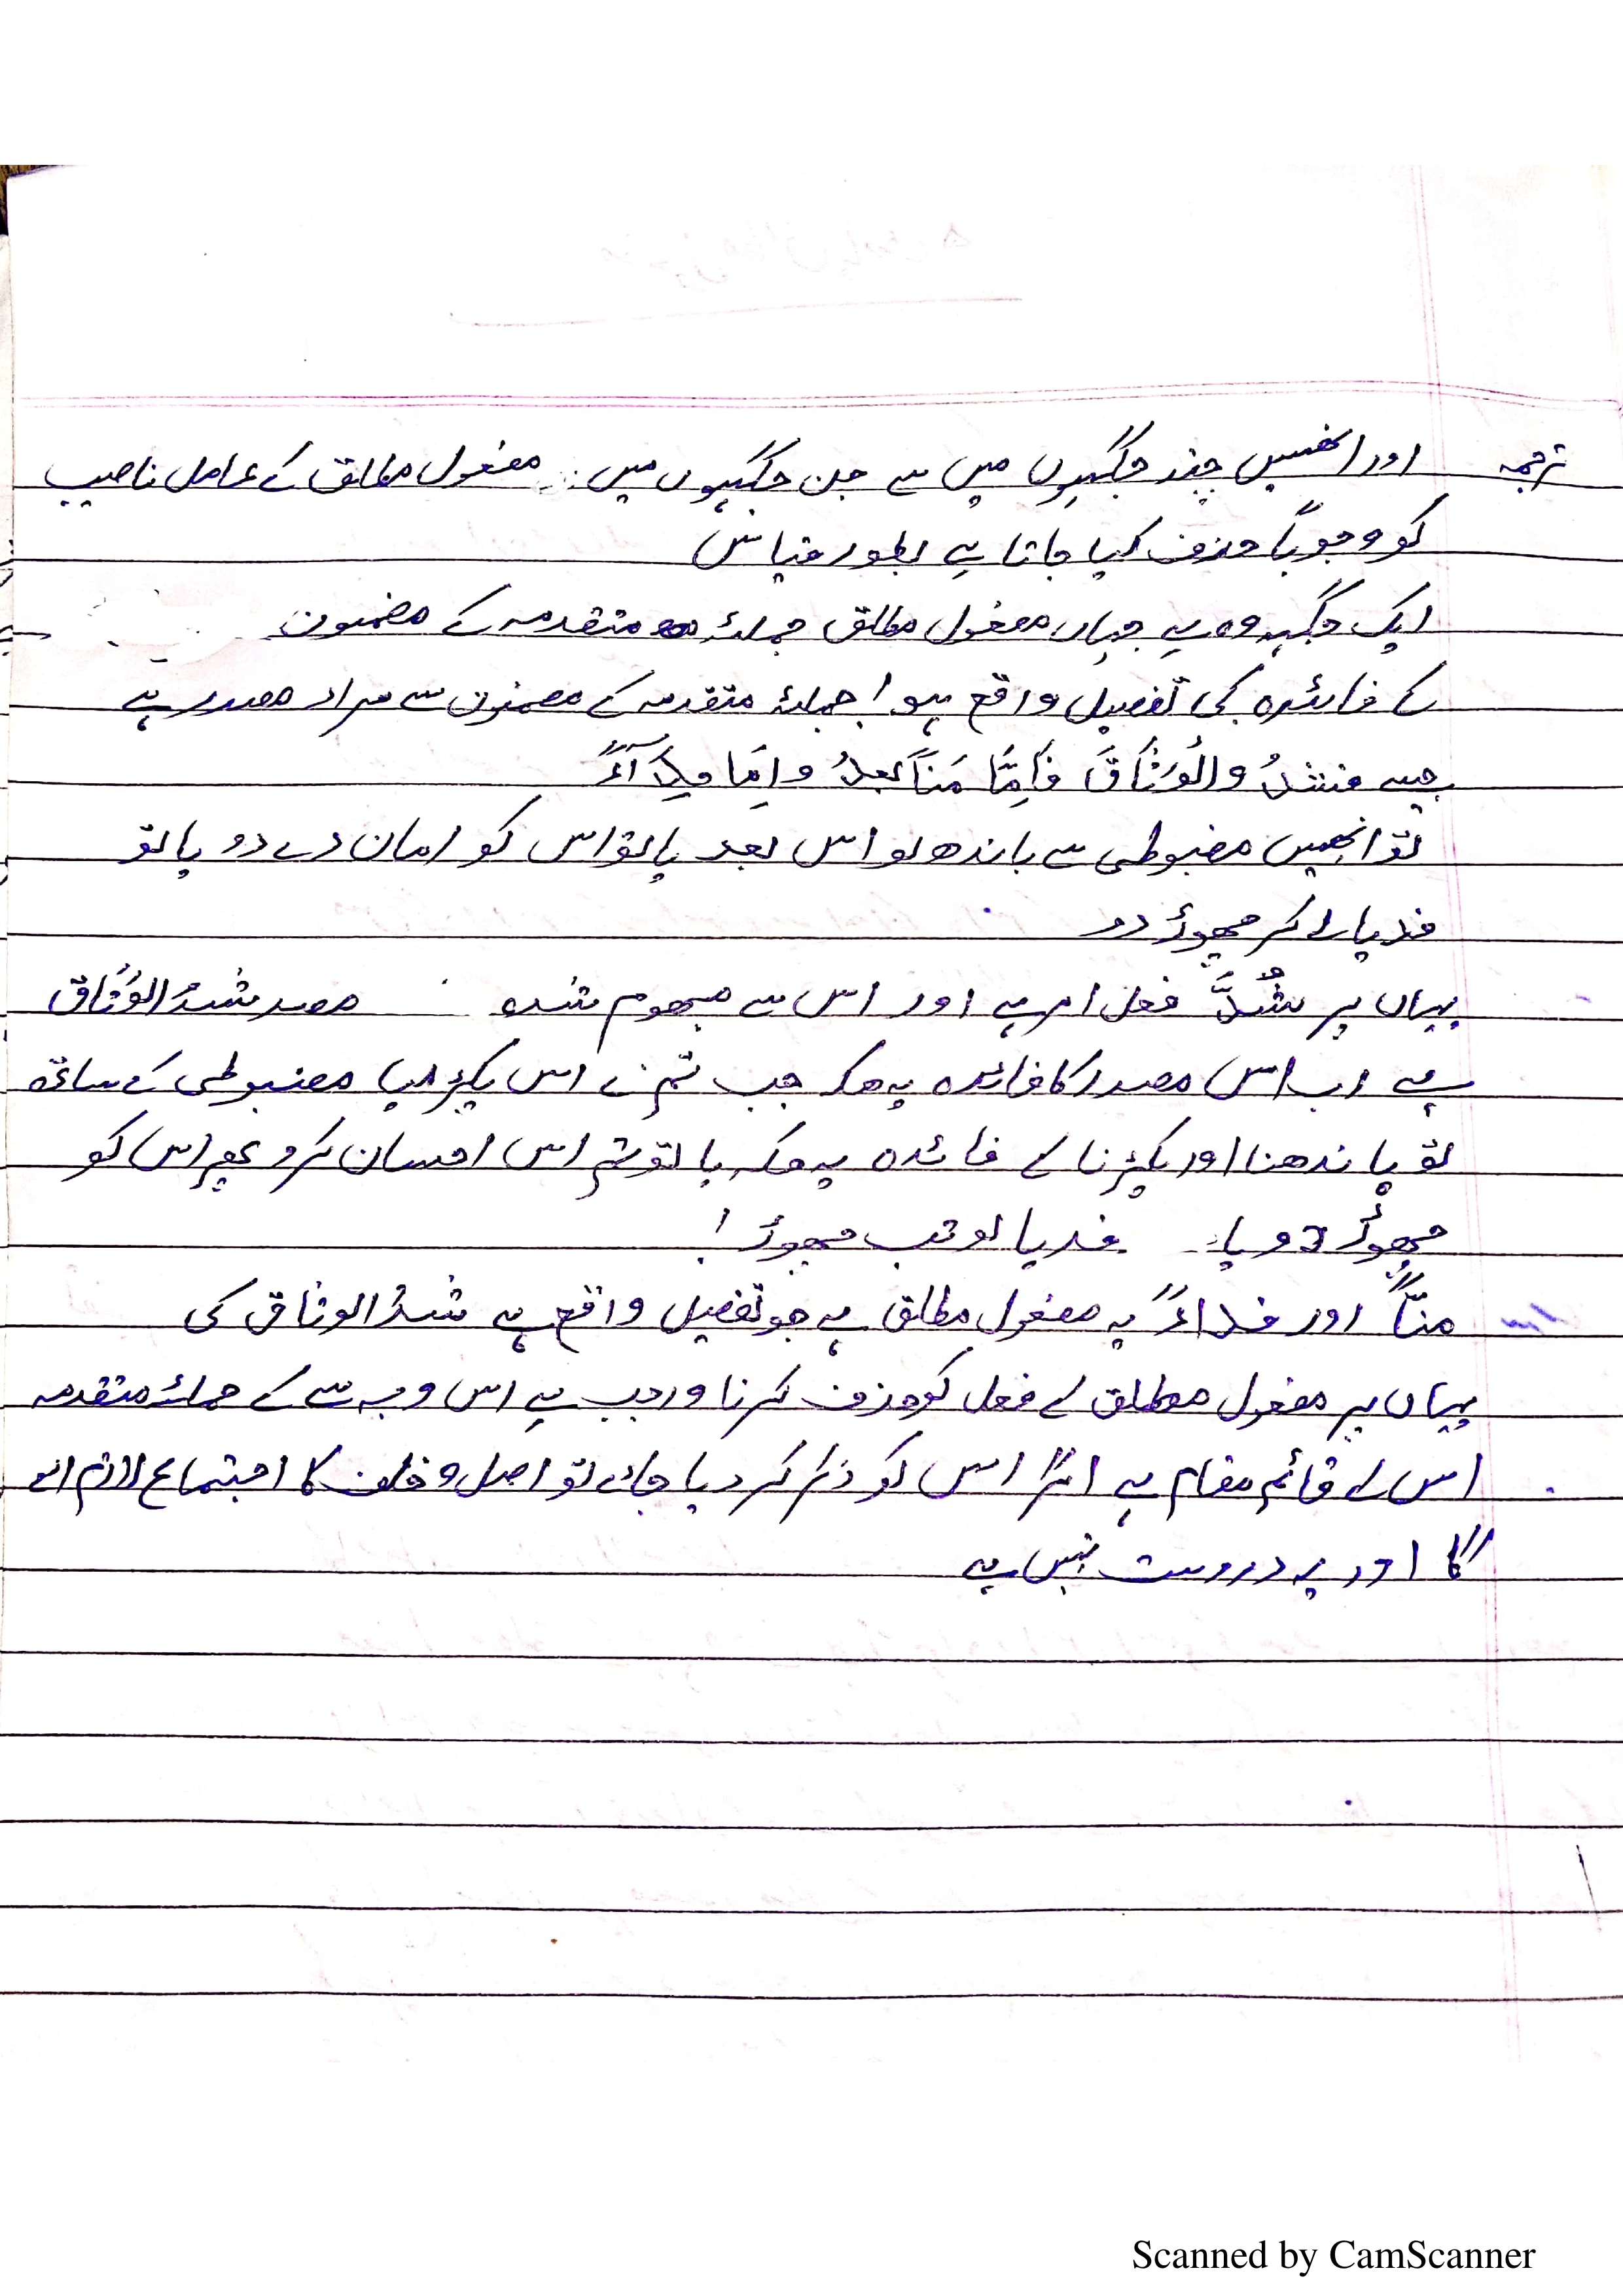 ترجمہ اور انھیں چند جگہوں میں سے جن جگہوں میں مفعول مطلق کے عامل ناصب
کو وجوباً حذف کیا جاتا ہے بطور قیاس
ایک جگہ وہ ہے جہاں مفعول مطلق جملۂ متقدمہ کے مضمون
کے فائدہ کی تفصیل واقع ہو! جملۂ متقدمہ کے مضمون سے مراد مصدر ہے
جیسے فشدُ والْوَثَاقَ فَاِمَّا مَنّاً بعدُ واِمَا فِدَآءً
تو انھیں مضبوطی سے باندھ لو اس بعد یا تو اس کو امان دے دو یا تو
فدیا لے کر چھوڑ دو
یہاں پر شُدَّ فعل امر ہے اور اس سے مبھوم شدہ مصد شدُ الوَثَاق
ہے اب اس مصدر کا فائدہ یہ ھکہ جب تم نے اس پکڑ لیا مضبوطی کے ساتھ
تو باندھنا اور پکڑنا کے فائدہ یہ ھکہ یا تو تم اس احسان کرو پھر اس کو
چھوڑ دو یا فدیا لو تب چھوڑ!
منّاً اور فداءً یہ مفعول مطلق ہے جو تفصیل واقع ہے شدُ الوثاق کی
یہاں پر مفعول مطلق کے فعل کو حذف کرنا واجب ہے اس وجہ سے کے جملۂ متقدمہ
اس کے قائم مقام ہے اگر اس کو ذکر کر دیا جائے تو اصل و خلف کا اجتماع لازم اے
گا اور یہ دروست نہیں ہے
Scanned by CamScanner